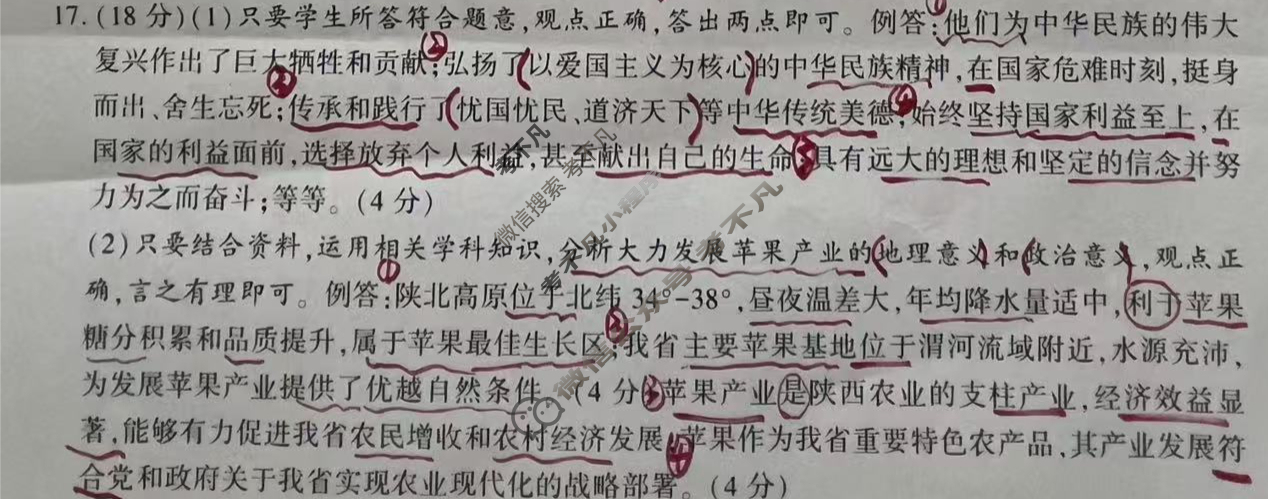 17.(18分)(1)只要学生所答符合题意,观点正确,答出两点即可。例答:他们为中华民族的伟大
复兴作出了巨大牺牲和贡献;弘扬了以爱国主义为核心的中华民族精神,在国家危难时刻,挺身
而出、舍生忘死;传承和践行了忧国忧民、道济天下等中华传统美德;始终坚持国家利益至上,在
国家的利益面前,选择放弃个人利益,甚至献出自己的生命;具有远大的理想和坚定的信念并努
力为之而奋斗;等等。(4分)
(2)只要结合资料,运用相关学科知识,分析大力发展苹果产业的地理意义和政治意义,观点正
确,言之有理即可。例答:陕北高原位于北纬34°-38°,昼夜温差大,年均降水量适中,利于苹果
糖分积累和品质提升,属于苹果最佳生长区;我省主要苹果基地位于渭河流域附近,水源充沛,
为发展苹果产业提供了优越自然条件。(4分)苹果产业是陕西农业的支柱产业,经济效益显
著,能够有力促进我省农民增收和农村经济发展;苹果作为我省重要特色农产品,其产业发展符
合党和政府关于我省实现农业现代化的战略部署。(4分)